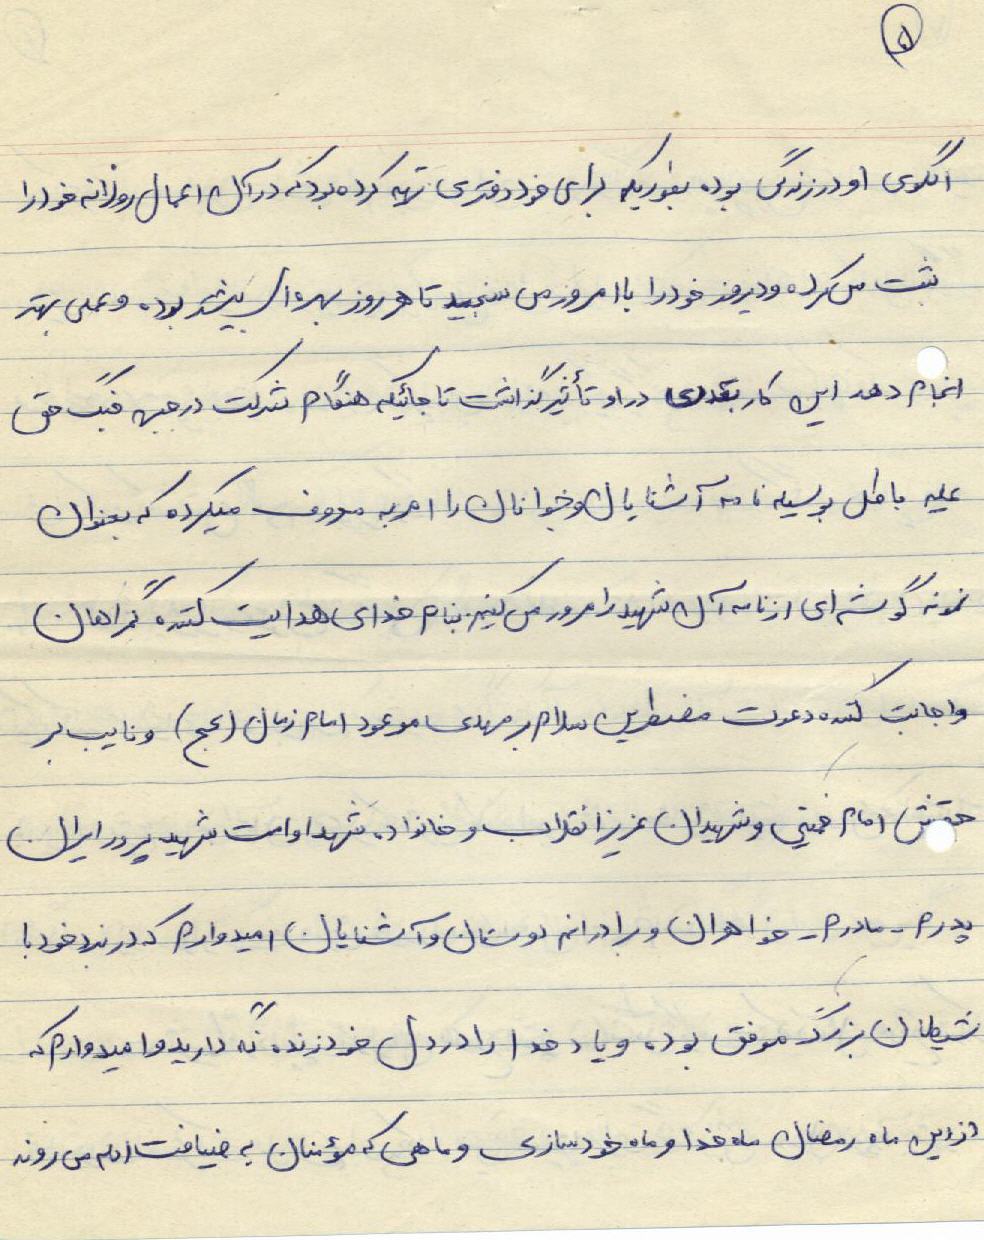 ۵
الگوی او در زندگی بوده بطوریکه برای خود دفتری تهیه کرده بود که در آن اعمال روزانه خود را
ثبت می کرده و دیروز خود را با امروز می سنجید تا هر روز بهره اش بیشتر بوده و عملی بهتر
انجام دهد این کار بقدری در او تأثیر گذاشت تا جائیکه هنگام شرکت در جبهه جنگ حق
علیه باطل بوسیله نامه آشنایان و جوانان را امر به معروف میکرده که بعنوان
نمونه گوشه ای از نامه آن شهید را مرور می کنیم. بنام خدای هدایت کننده گمراهان
و اجابت کننده دعوت مضطرین سلام بر مهدی موعود امام زمان (عج) و نایب بر
حقش امام خمینی و شهیدان عزیز انقلاب و خانواده شهدا و امت شهید پرور ایران
پدرم - مادرم - خواهران و برادرانم دوستان و آشنایان امیدوارم که در نبرد خود با
شیطان بزرگ موفق بوده و یاد خدا را در دل خود زنده نگه دارید و امیدوارم که
از این ماه رمضان ماه خدا و ماه خودسازی و ماهی که مؤمنان به ضیافت امام می روند